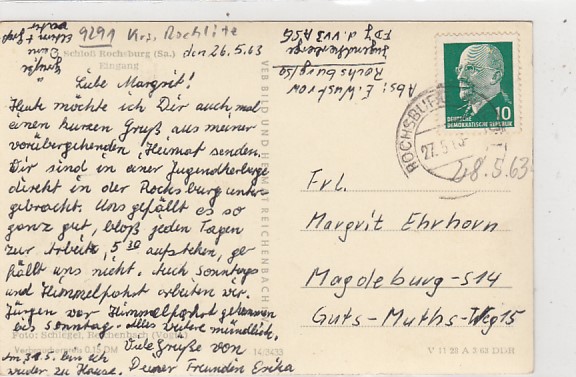 9291 Krs. Rochlitz
den 26.5.63
Schloß Rochsburg (Sa.)
Eingang
Liebe Margrit!
Heute möchte ich Dir auch mal
einen kurzen Gruß aus meiner
vorübergehenden Heimat senden.
Wir sind in einer Jugendherberge
direkt in der Rochsburg unter-
gebracht. Uns gefällt es so
ganz gut, bloß jeden Tagen
zur Arbeit, 5 30 aufstehen, ge-
fällt uns nicht. Auch Sonntags
und Himmelfahrt arbeiten wir.
Jürgen war Himmelfahrt gekommen
bis Sonntag. Alles Weitere mündlich.
Viele Grüße von
Deiner Freundin Erika
Am 31.5. bin ich
wieder zu Hause.
Foto: Schlegel, Reichenbach (Vogtl.)
Verbraucherpreis 0,15 DM
14/2433
VEB BILD UND HEIMAT REICHENBACH
Abs: E. Wustrow
Rochsburg/Sa
Jugendherberge
10
DEUTSCHE
DEMOKRATISCHE REPUBLIK
ROCHSBURG
27.5.63
28.5.63
Frl.
Margrit Ehrhorn
Magdeburg-S14
Guts-Muths-Weg 15
V 11 28 A 2 63 DDR